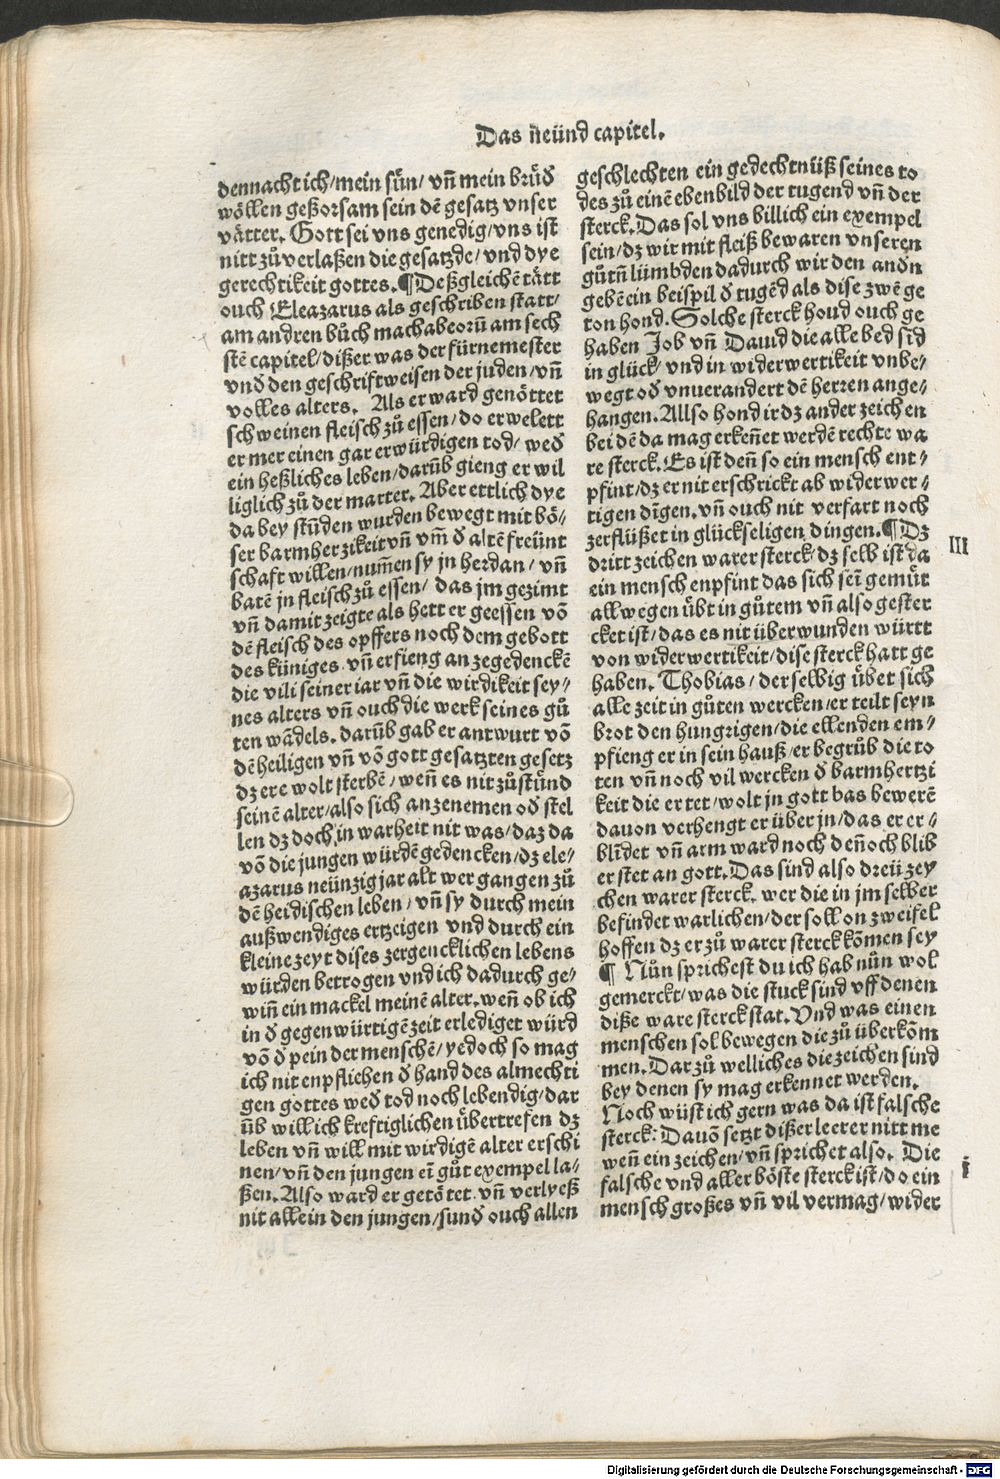 Das neünd capitel.
dennacht ich/mein sün/ vñ mein brüď
wöllen gehorsam sein dẽ gesatz vnser
vätter. Gott sei vns genedig/vns ist
nitt zůverlaßen die gesatzde/ vnd dye
gerechtikeit gottes.¶Deßgleichẽ tätt
ouch Eleazarus als geschriben statt/
am andren bůch machabeorũ am sech
stẽ capitel/dißer was der fürnemester
vnď den geschriftweisen der juden/vñ
volles alters. Als er ward genöttet
schweinen fleisch zů essen/do erwelett
er mer einen gar erwürdigen tod/ weď
ein heßliches leben/darũb gieng er wil
liglich zů der marter. Aber ettlich dye
da bey stũden wurden bewegt mit bö⸗
ser barmherzikeit vñ vm̃ ď altẽ freünt
schaft willen/num̃en sy jn herdan/ vñ
batẽ jn fleisch zů essen/ das jm gezimt
vñ damit zeigte als hett er geessen võ
dẽ fleisch des opffers noch dem gebott
des küniges. vñ er fieng an zegedenckẽ
die vili seiner iar vñ die wirdikeit sey⸗
nes alters vñ ouch die werk seines gů
ten wãdels. darũb gab er antwurt võ
dẽ heiligen vñ võ gott gesatzten gesetz
dz er e wolt sterbẽ/ weñ es nit zůstünd
seinẽ alter/also sich anzenemen oď stel
len dz doch in warheit nit was/daz da
võ die jungen würdẽ gedencken/dz ele⸗
azarus neünzig jar alt wer gangen zů
dẽ heidischen leben/ vñ sy durch mein
außwendiges ertzeigen vnd durch ein
kleine zeyt dises zergencklichen lebens
würden betrogen vnd ich dadurch ge⸗
wiñ ein mackel meinẽ alter. weñ ob ich
in ď gegenwürtigẽ zeit erlediget würd
võ ď pein der menschẽ/yedoch so mag
ich nit enpfliehen ď hand des almechti
gen gottes weď tod noch lebendig/dar
ũb will ich kreftiglichen übertrefen dz
leben vñ will mit wirdigẽ alter erschi
nen/vñ den jungen eĩ gůt exempel la⸗
ßen. Also ward er getötet. vñ verlyeß
nit allein den jungen/sunď ouch allen
geschlechten ein gedechtnüß seines to
des zů einẽ ebenbild der tugend vñ der
sterck. Das sol vns billich ein exempel
sein/dz wir mit fleiß bewaren vnseren
gůtñ lümbden dadurch wir den anďn
gebẽ ein beispil ď tugẽd als dise zwẽ ge
ton hond. Solche sterck houd ouch ge
haben Job vñ Dauid die alle bed sĩd
in glück/ vnd in widerwertikeit vnbe⸗
wegt oď vnuerandert dẽ herren ange⸗
hangen. Allso hond ir dz ander zeichen
bei dẽ da mag erkeñet werdẽ rechte wa
re sterck. Es ist deñ so ein mensch ent⸗
pfint/dz er nit erschrickt ab widerwer⸗
tigen dĩgen. vñ ouch nit verfart noch
zerflüßet in glückseligen dingen.¶Dz
III
dritt zeichen warer sterck/dz selb ist da
ein mensch enpfint das sich seĩ gemüt
allwegen übt in gůtem vñ also gester
cket ist/das es nit überwunden württ
von widerwertikeit/dise sterck hatt ge
haben. Thobias/ der selbig übet sich
alle zeit in gůten wercken/er teilt seyn
brot den hungrigen/die ellenden em⸗
pfieng er in sein hauß/er begrůb die to
ten vñ noch vil wercken ď barmhertzi
keit die er tet/wolt jn gott bas bewerẽ
dauon verhengt er über jn/das er er⸗
blĩdet vñ arm ward noch deñoch blib
er stet an gott. Das sind also dreü zey
chen warer sterck. wer die in jm selber
befindet warlichen/der soll on zweifel
hoffen dz er zů warer sterck kõmen sey
¶ Nůn sprichest du ich hab nůn wol
gemerckt/was die stuck sind vff denen
diße ware sterck stat. Vnd was einen
menschen sol bewegen die zů überkõm
men. Darzů welliches die zeichen sind
bey denen sy mag erkennet werden.
Noch wüst ich gern was da ist falsche
sterck: Dauõ setzt dißer leerer nitt me
weñ ein zeichen/vñ sprichet also. Die
i
falsche vnd aller böste sterck ist/do ein
mensch großes vñ vil vermag/wider
Digitalisierung gefördert durch die Deutsche Forschungsgemeinschaft - DFG